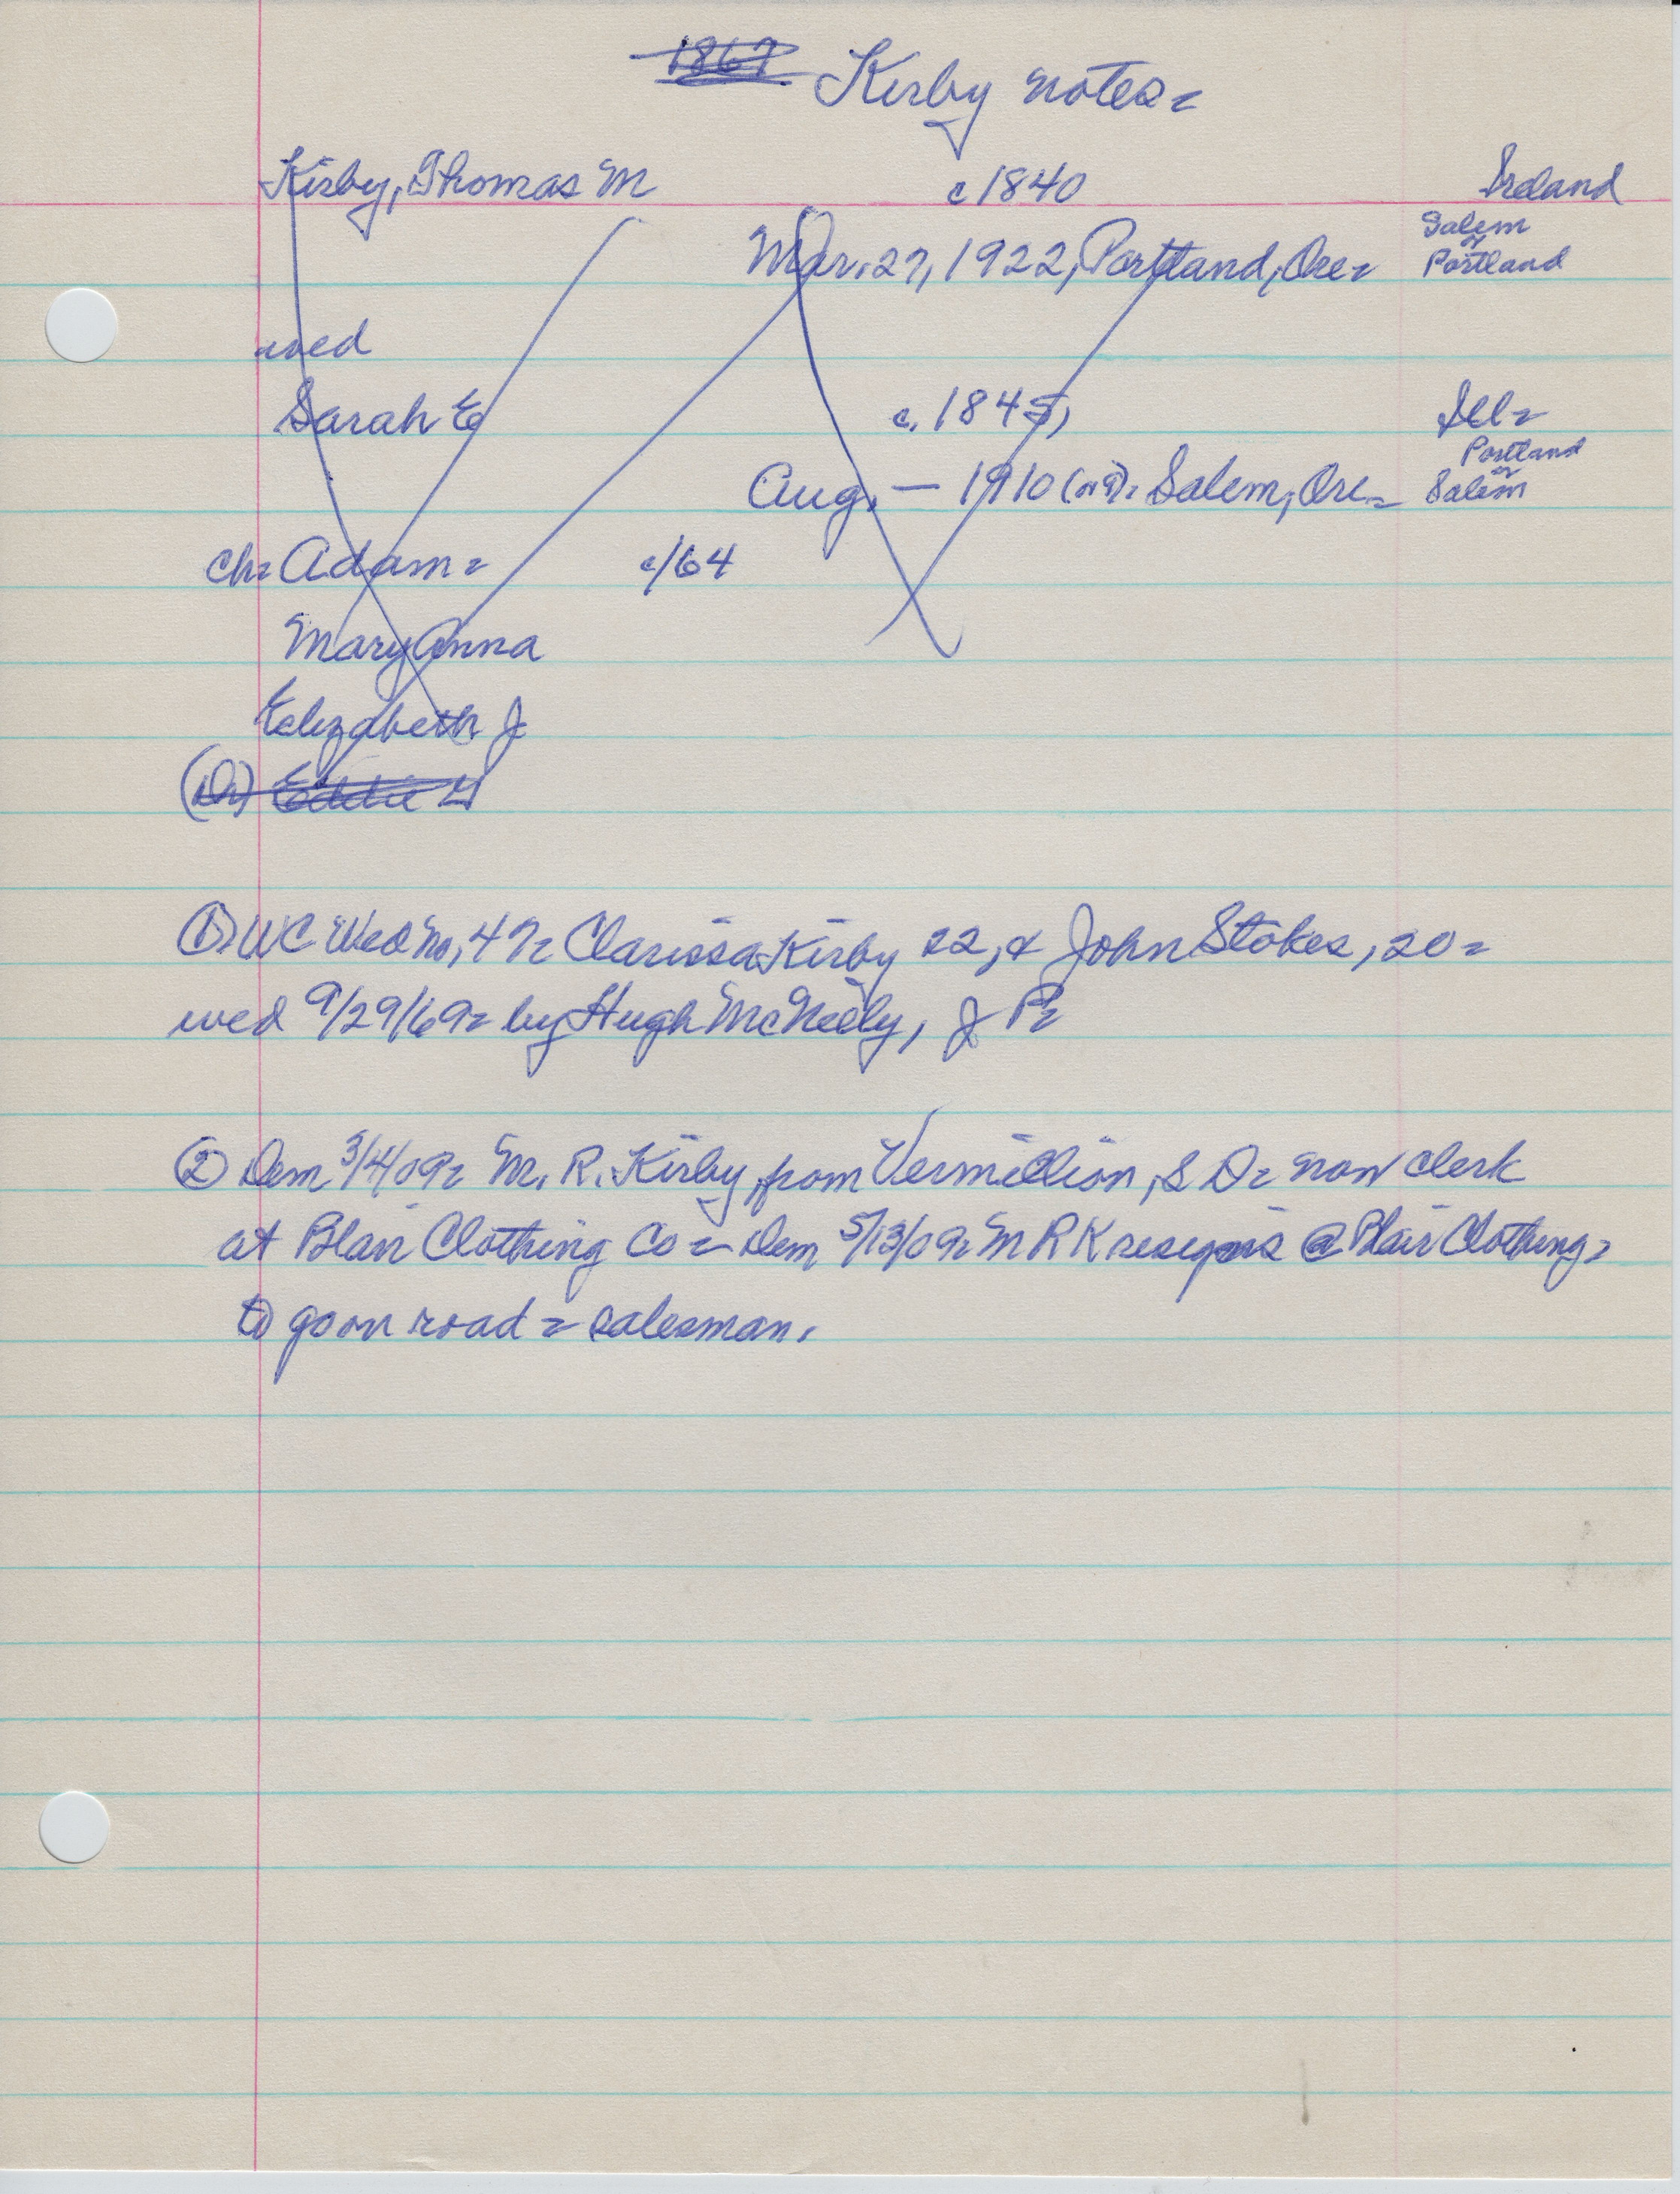 1867 Kirby notes=
Kirby, Thomas M c 1840 Ireland
Mar. 27, 1922, Portland, Ore= Salem or Portland
wed
Sarah E c. 1845, Ill=
Aug. — 1910 (or 9)= Salem, Ore= Portland or Salem
ch= Adam= c/64
Mary Anna
Elizabeth J
(Dr) Eddie G
① WC Wed No, 47= Clarissa Kirby 22, & John Stokes, 20=
wed 9/29/69= by Hugh McNeely, J P=
② Dem 3/4/09= M. R. Kirby, from Vermillion, S D= now clerk
at Blair Clothing Co = Dem 5/13/09= M R K resigns @ Blair Clothing=
to go on road = salesman.